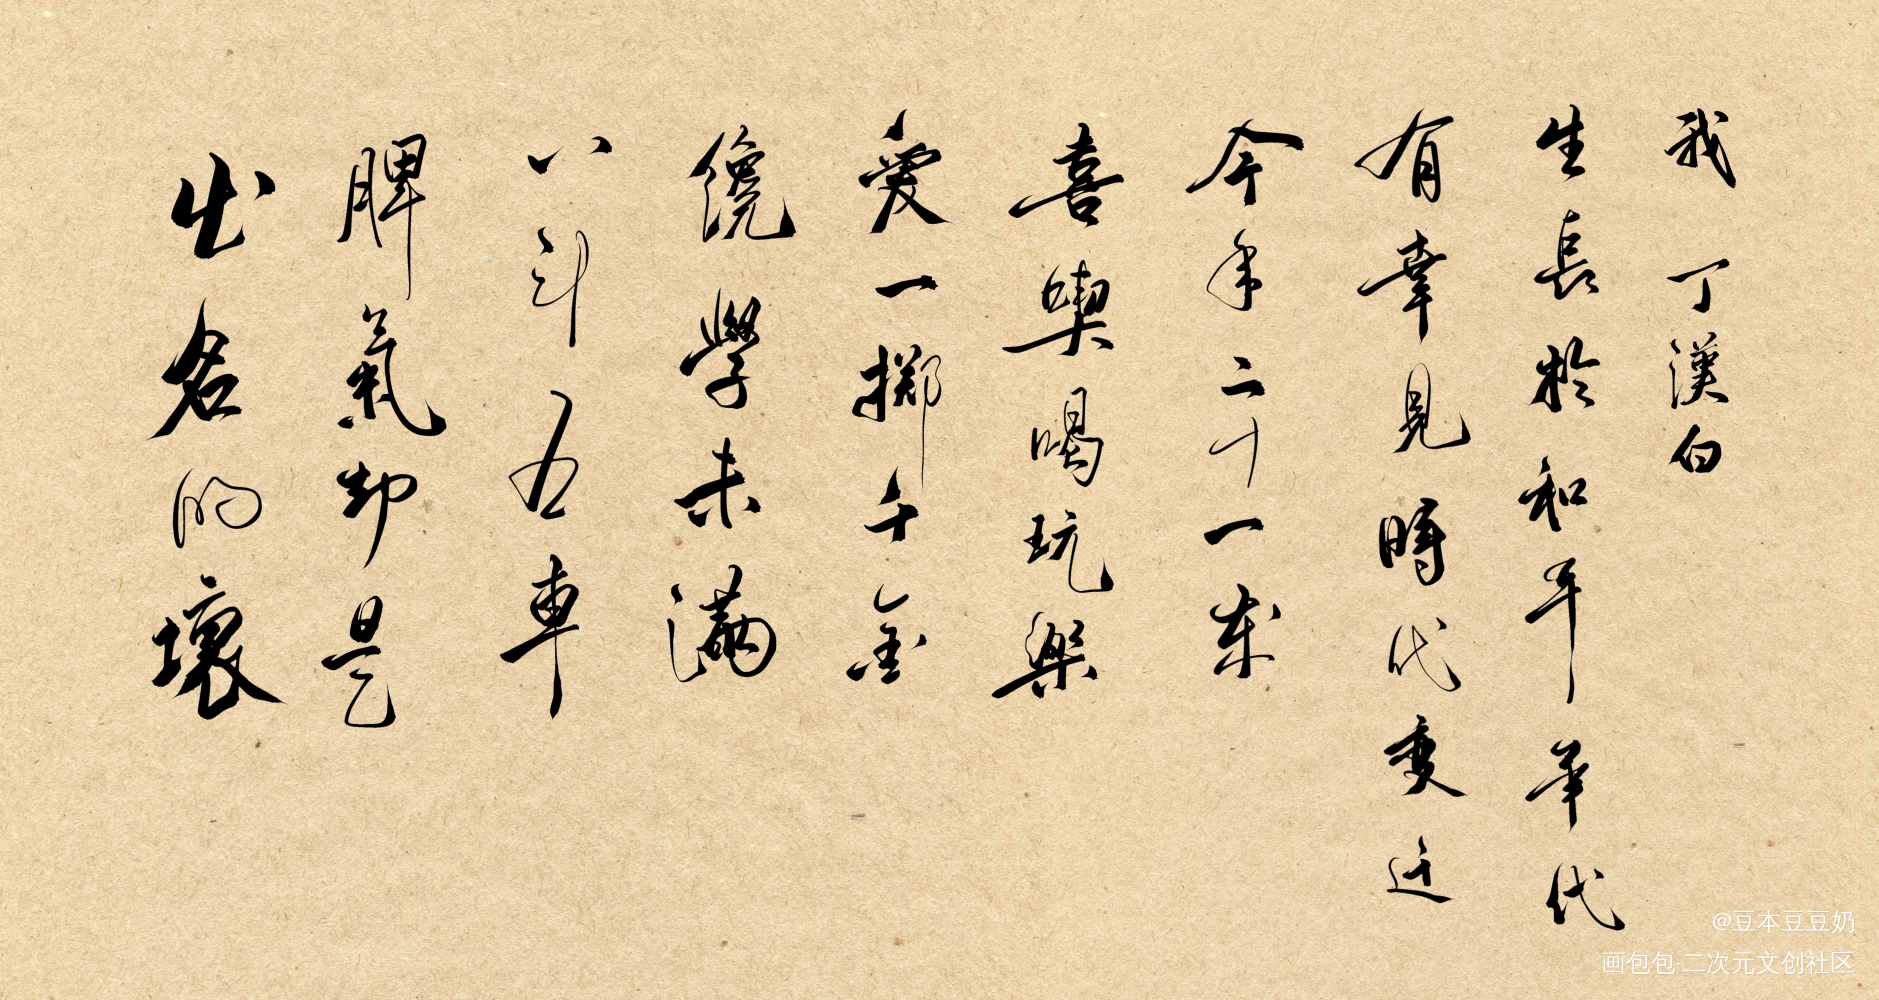 我丁漢白
生長於和平年代
有幸見時代变迁
今年二十一歲
喜喫喝玩樂
愛一擲千金
纔學未滿
八斗五車
脾氣却是
出名的壞
@豆本豆豆奶
画包包·二次元文创社区